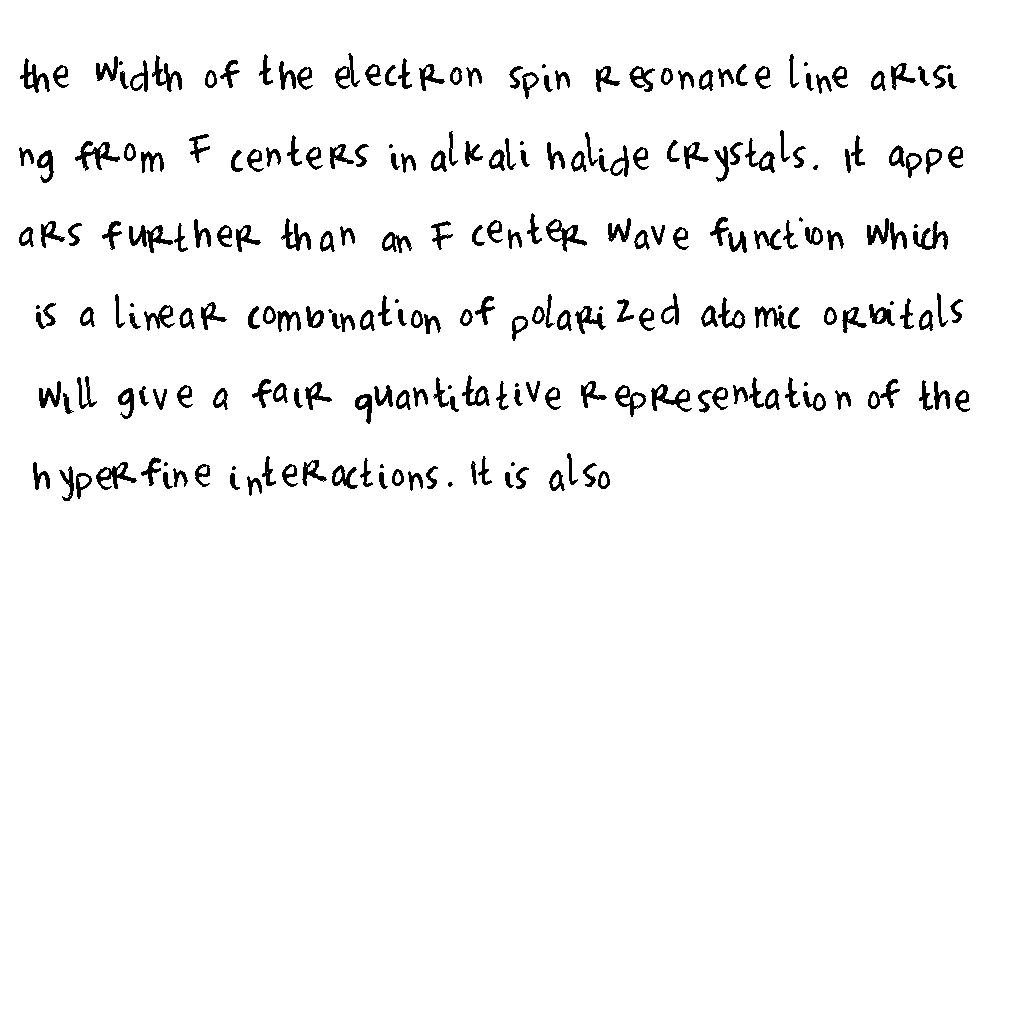 the width of the electron spin resonance line arisi
ng from F centers in alkali halide crystals. It appe
ars further than an F center wave function which
is a linear combination of polarized atomic orbitals
will give a fair quantitative representation of the
hyperfine interactions. It is also